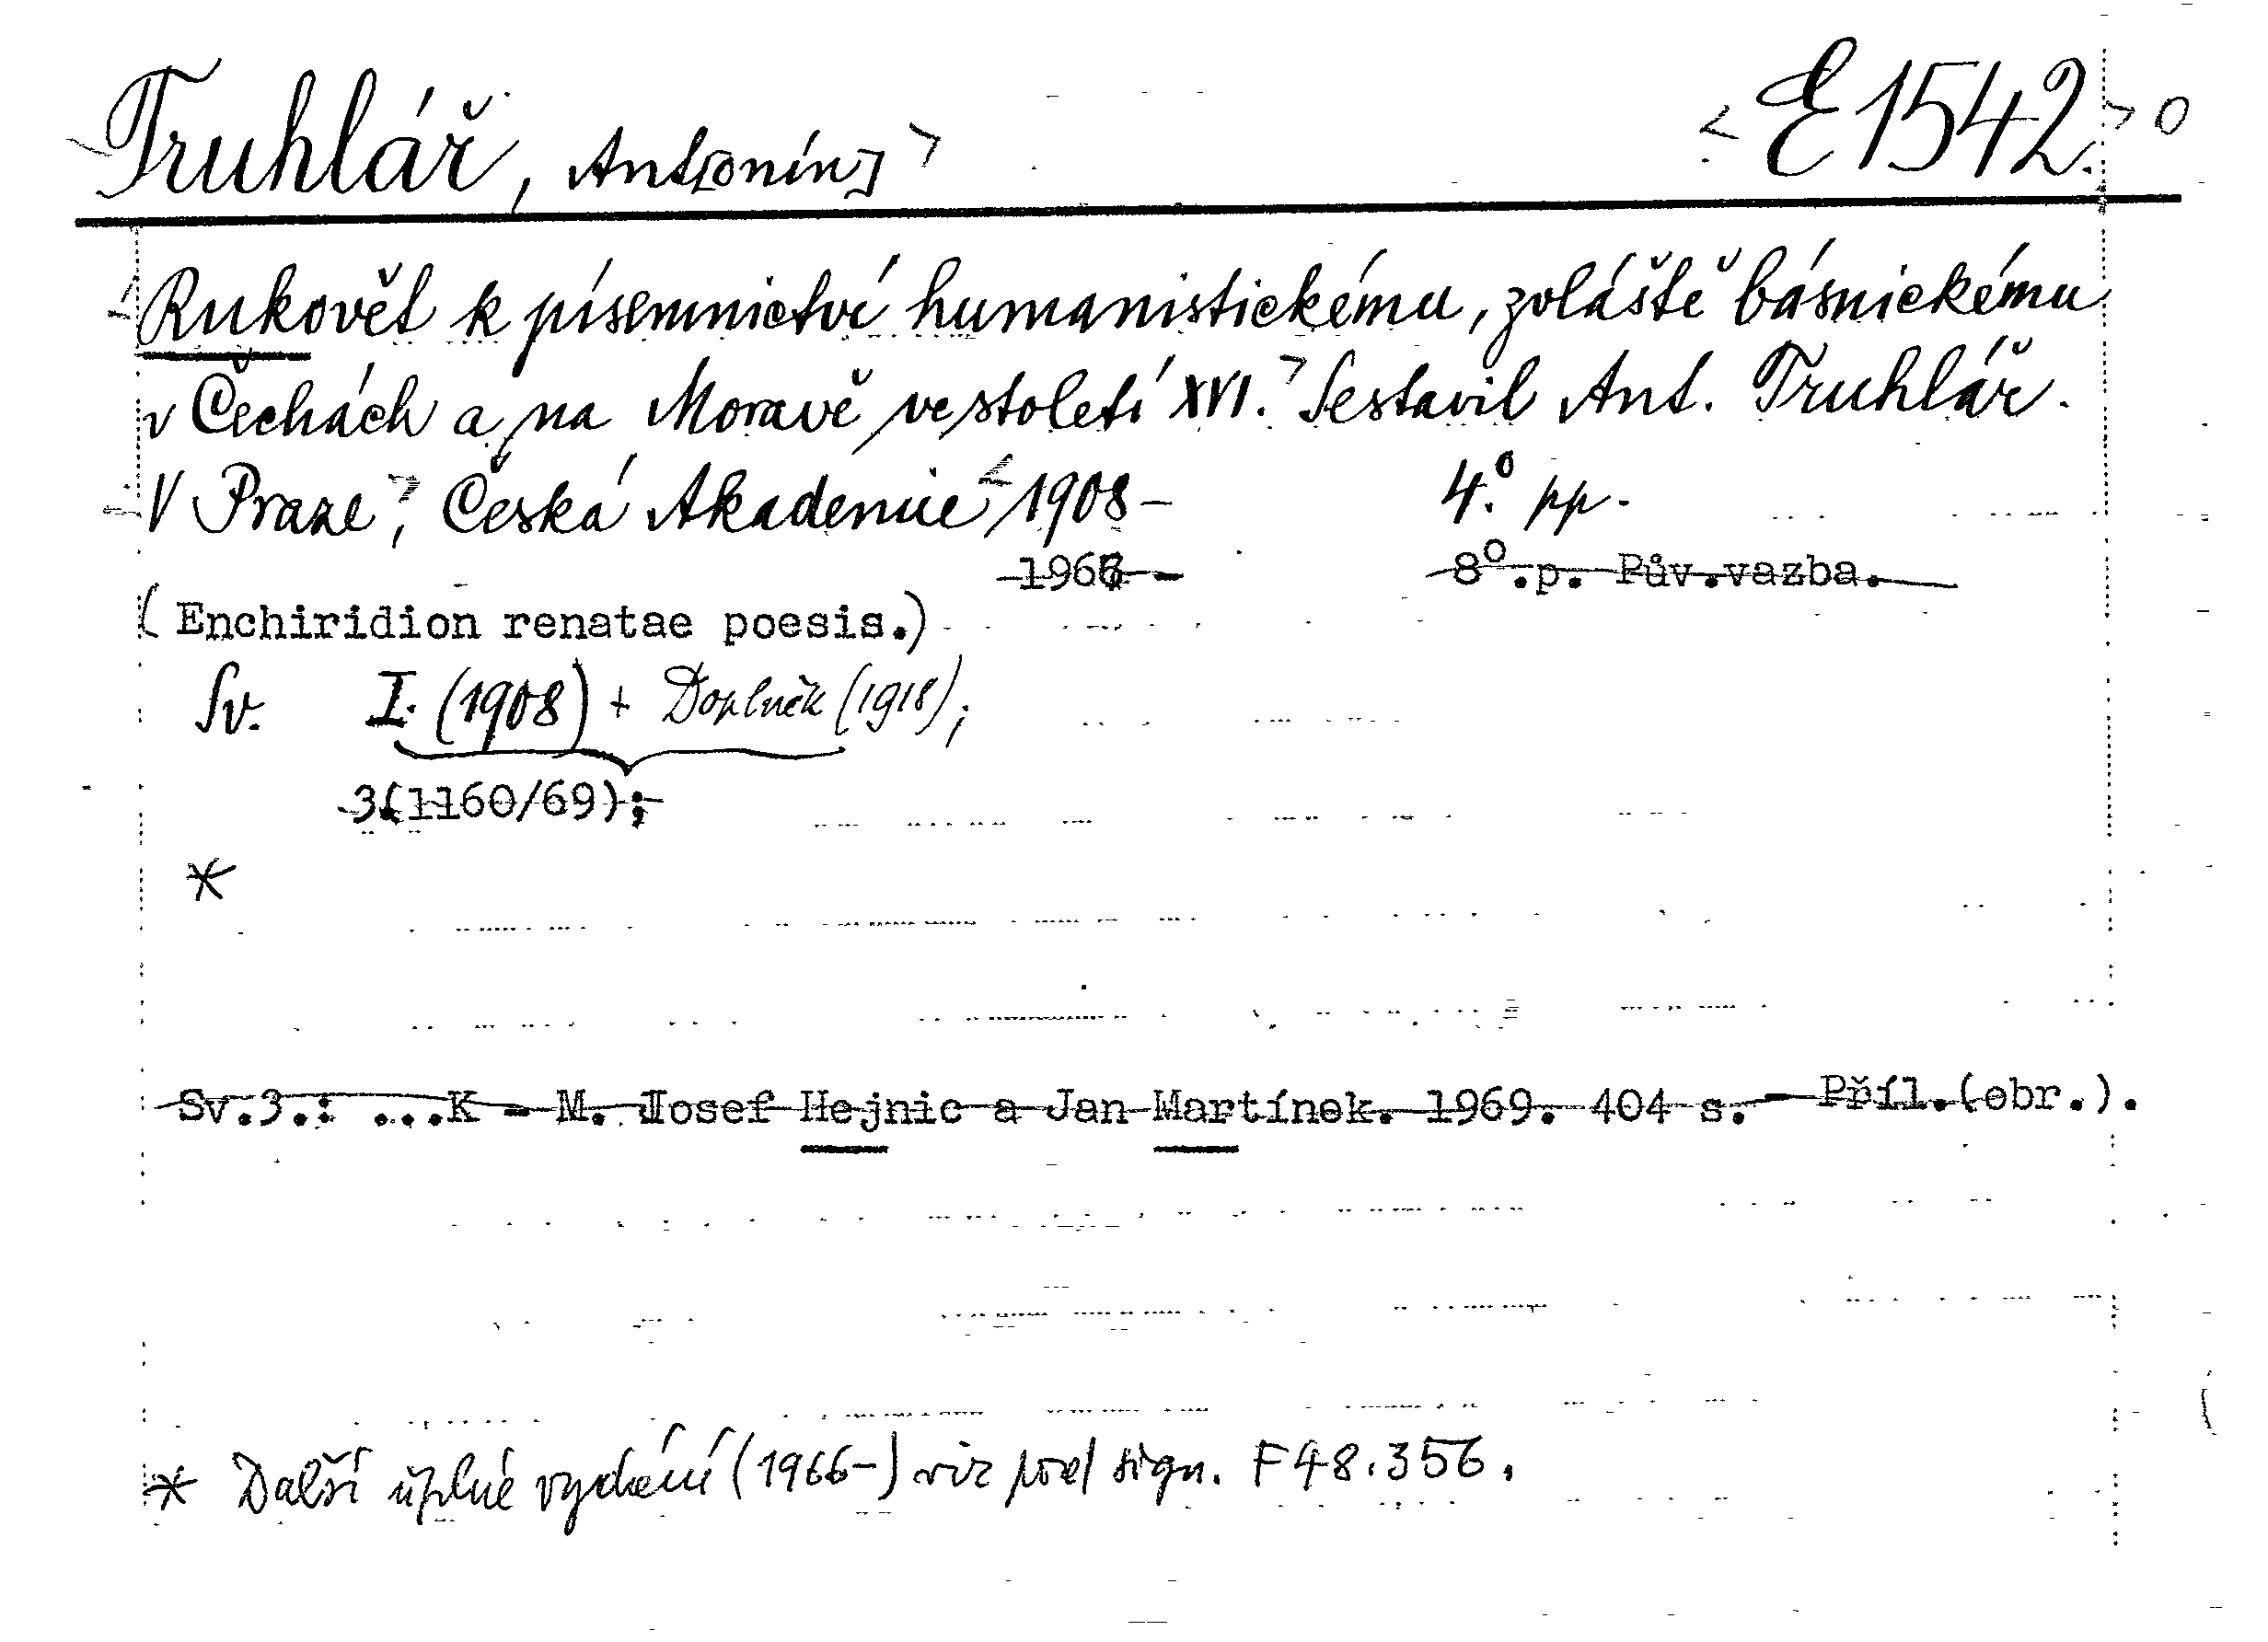 Truhlář, Ant[onín] E 1542.
Rukověť k písemnictví humanistickému, zvláště básnickému
v Čechách a na Moravě ve století XVI. Sestavil Ant. Truhlář.
V Praze, Česká Akademie 1908- 4.° pp.
1966- 8°.p. Pův.vazba.
(Enchiridion renatae poesis.)
Sv. I. (1908) + Doplněk (1918);
3.(1160/69);
*
Sv.3.: ...K - M. Josef Hejnic a Jan Martínek. 1969. 404 s. - Příl.(obr.).
* Další úplné vydání (1966-) viz pod sign. F 48.356.